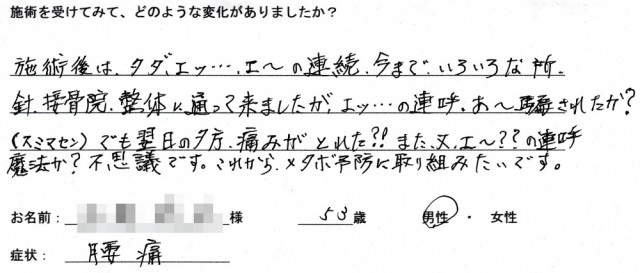 施術を受けてみて、どのような変化がありましたか?
施術後は、タダ、エッ…、エ〜の連続、今まで、いろいろな所。
針、接骨院、整体に通って来ましたが、エッ…の連呼。あ〜騙されたか?
(スミマセン)でも翌日の夕方、痛みがとれた?!また、又、エ〜??の連呼
魔法か?不思議です。これから、メタボ予防に取り組みたいです。
お名前: 様 53歳 男性・女性
症状: 腰痛